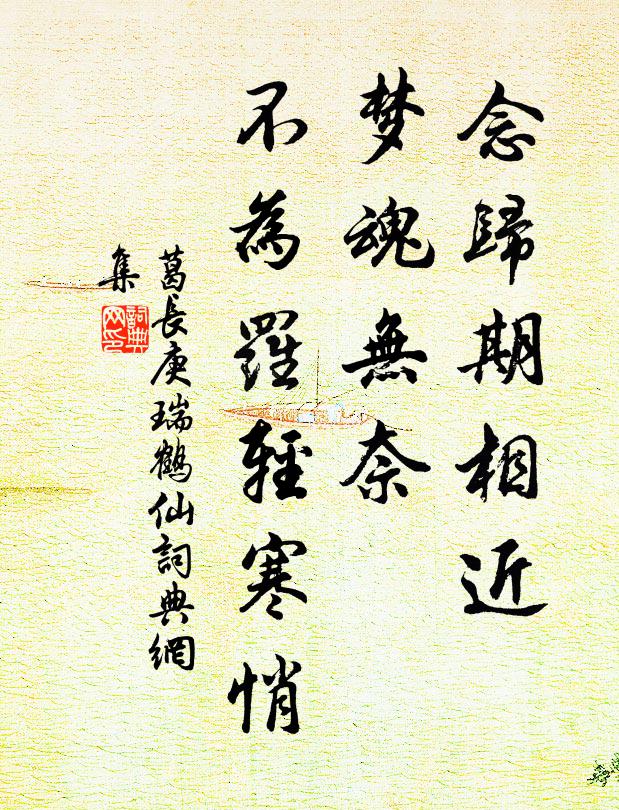 念歸期相近
梦魂無奈
不為羅輕寒悄
葛長庚瑞鶴仙詞典網
集
詞典
网印